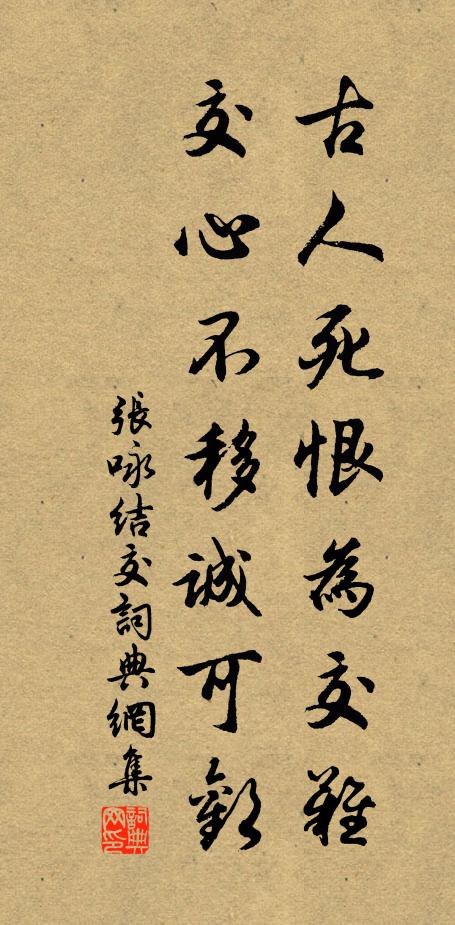 古人死恨為交難
交心不移誠可歡
張咏結交詞典網集
詞典网印